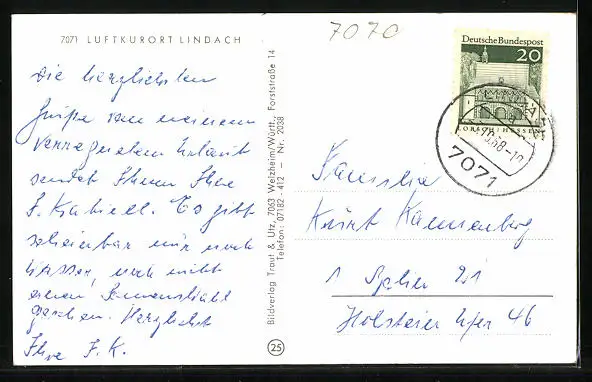 7071 LUFTKURORT LINDACH
7070
Die herzlichsten
Grüße von meinem
verregneten Urlaub
sendet Ihnen Ihre
Es gibt
scheinbar nur noch
Wasser, noch nicht
einen Sonnenstrahl
gesehen. Herzlichst
Ihre I. K.
Bildverlag Traut & Utz, 7063 Welzheim/Württ., Forststraße 14
Telefon: 07182 - 412 — Nr. 2038
25
Deutsche Bundespost
20
LORSCH/HESSEN
68
7071
Familie
Kurt
1 Berlin 21
Holsteiner Ufer 46